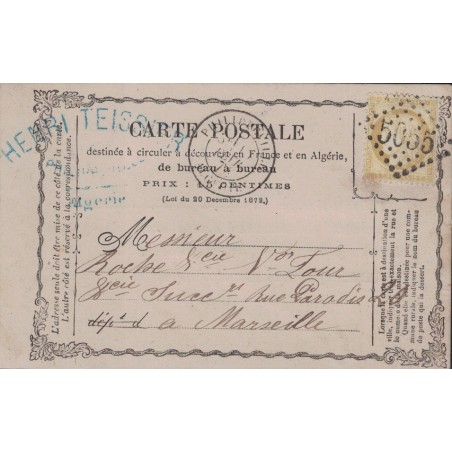 HENRI TEISSIER
Algérie
PHILIPPEVILLE
5055
CARTE POSTALE
destinée à circuler à découvert en France et en Algérie,
de bureau à bureau
PRIX : 15 CENTIMES
(Loi du 20 Décembre 1872.)
L'adresse seule doit être mise de ce côté de la carte.
L'autre côté est réservé à la correspondance.
Monsieur
Roche & Cie Vor Four
Succrs Rue Paradis
à Marseille
Lorsque la carte est à destination d'une
ville, indiquer exactement la rue et
Quand elle est destinée à une com-
mune rurale, indiquer le nom du bureau
de poste qui la dessert.